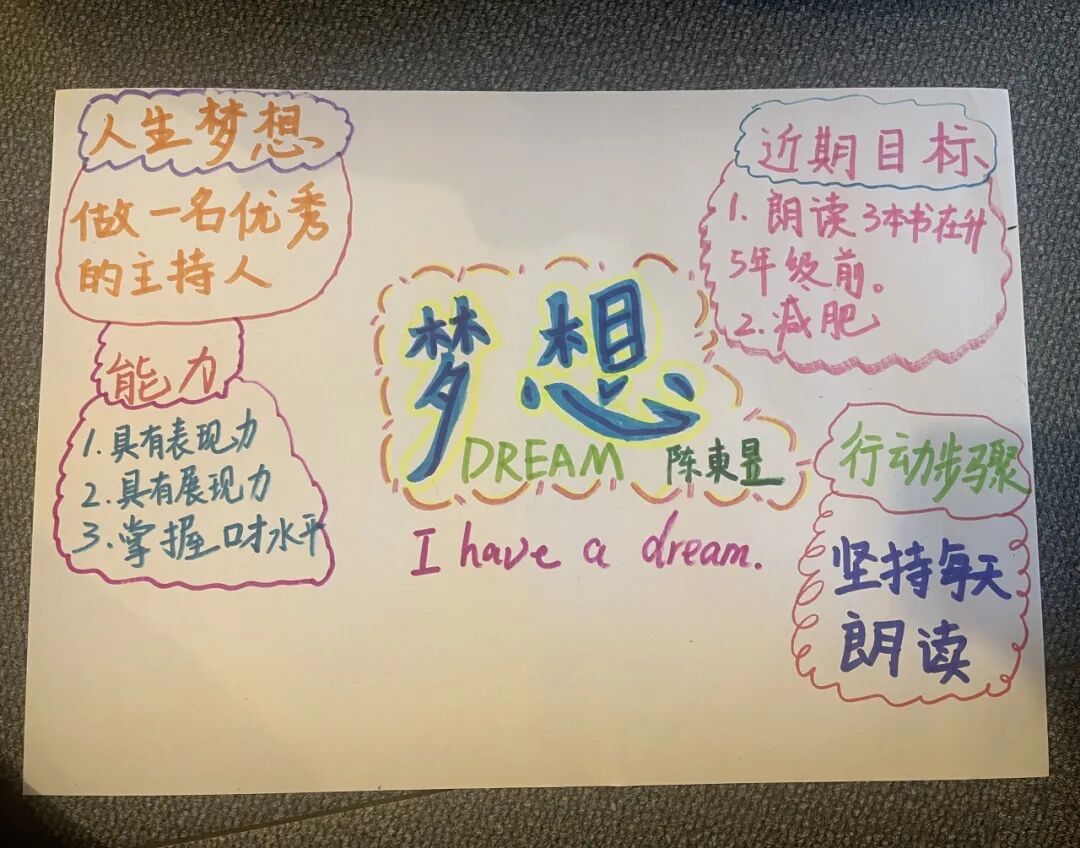 人生梦想
做一名优秀
的主持人
能力
1.具有表现力
2.具有展现力
3.掌握口才水平
梦想
DREAM 陈東昱
I have a dream.
近期目标
1.朗读3本书在升
5年级前。
2.减肥
行动步骤
坚持每天
朗读